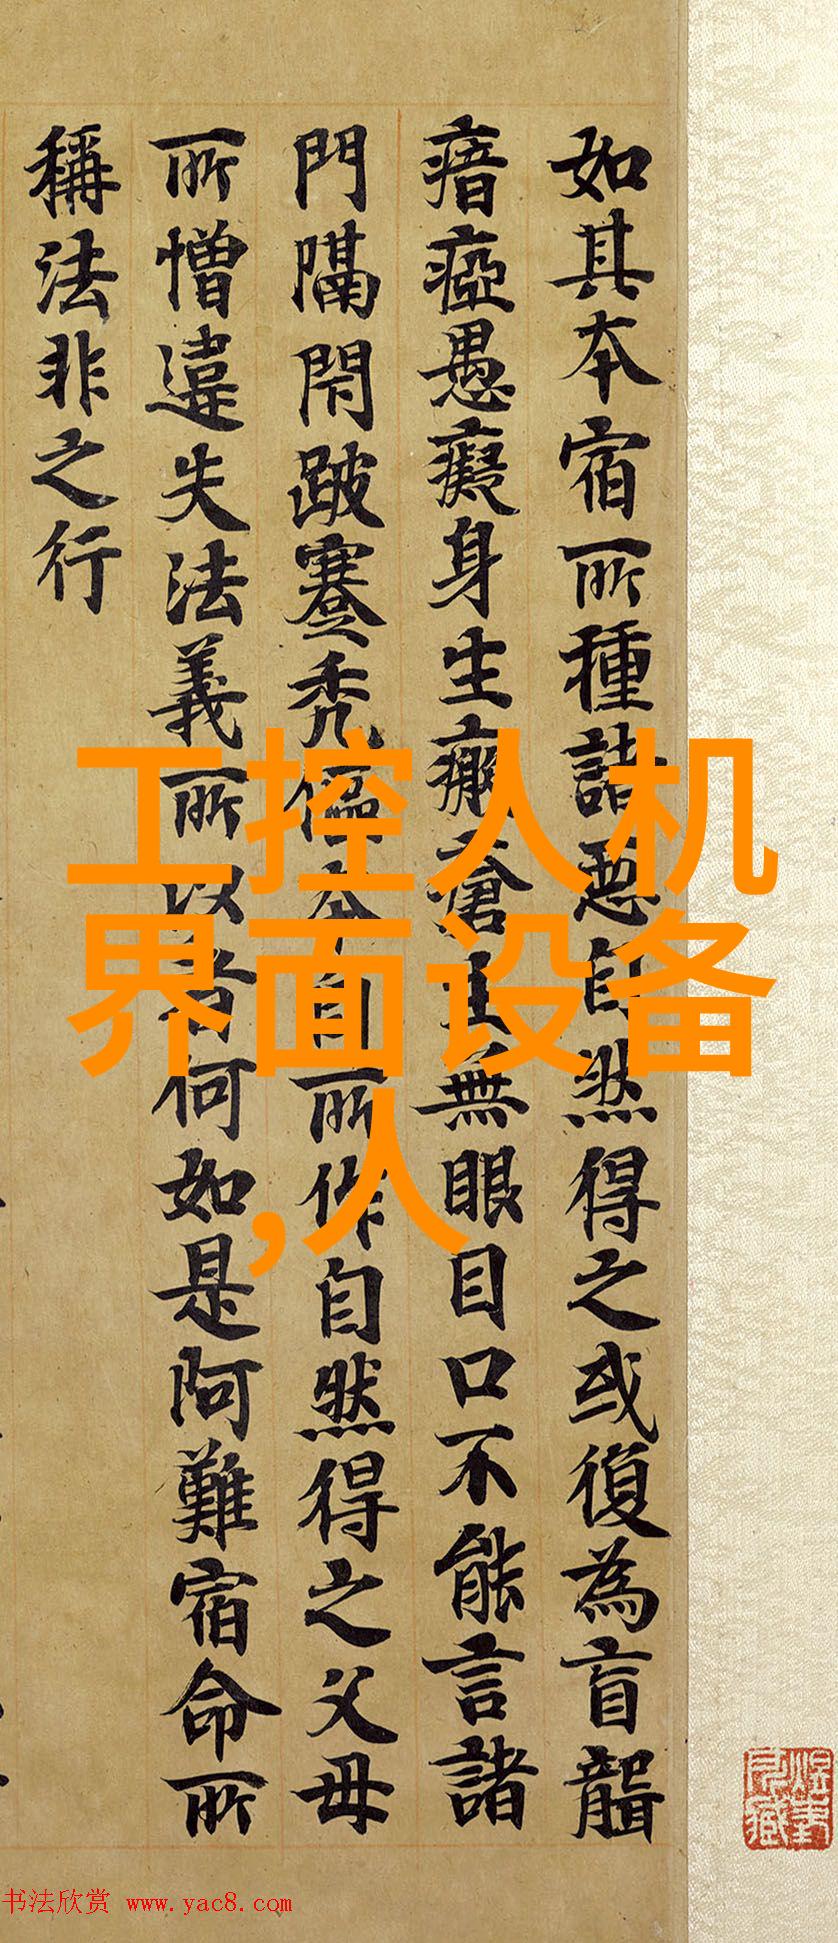 如其本宿所種諸惡自然得之或復為盲聾
瘖瘂愚癡身生癩瘡生無眼目口不能言諸
門隔閇跛蹇禿傴本自所作自然得之父母
所憎違失法義所以者何如是阿難宿命所
稱法非之行
工控人机
界面设备
,人
书法欣赏 www.yac8.com